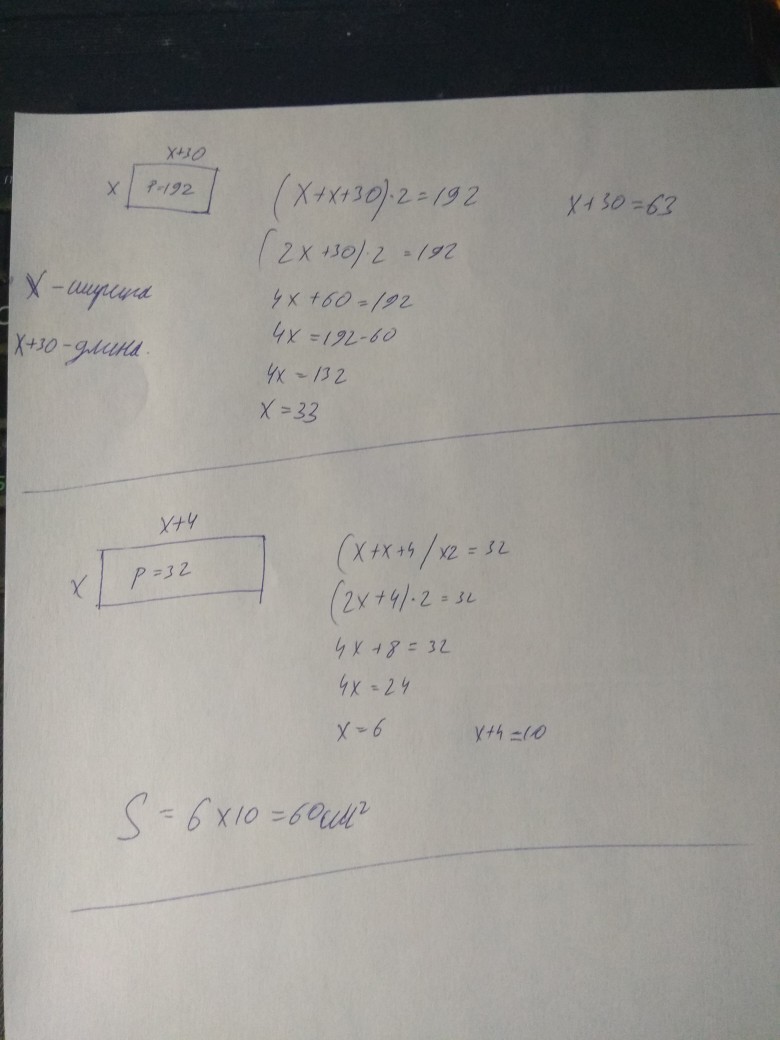 x+30
x P=192
(x+x+30)·2=192
x+30=63
(2x+30)·2=192
x - ширина
4x+60=192
x+30-длина.
4x=192-60
4x=132
x=33
x+4
x P=32
(x+x+4)x2=32
(2x+4)·2=32
4x+8=32
4x=24
x=6
x+4=10
S=6x10=60см²